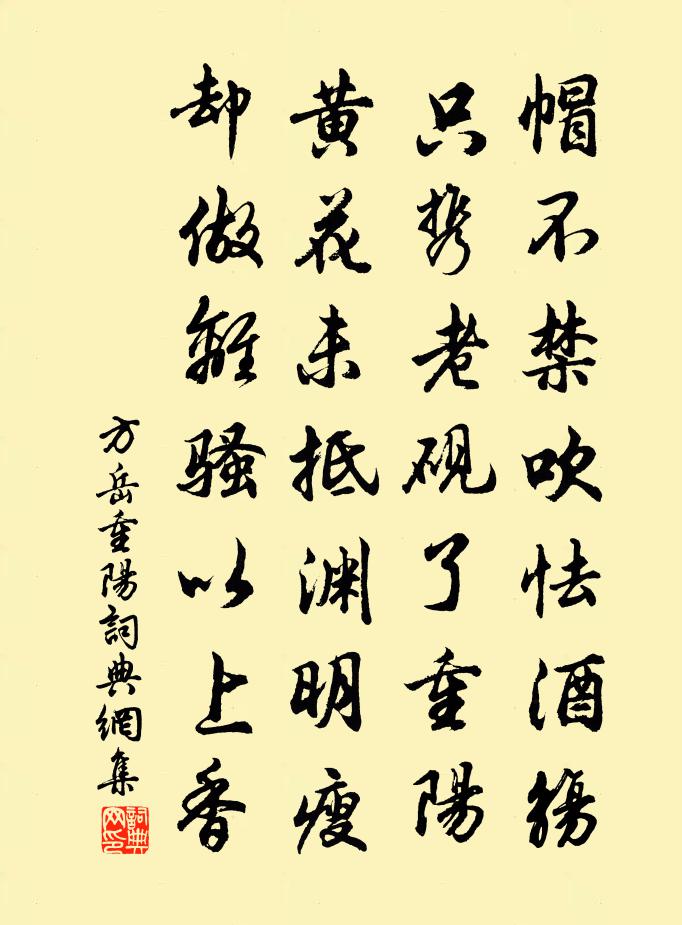 帽不禁吹怯酒觞
只携老砚了重陽
黄花未抵渊明瘦
却做離骚以上香
方岳重陽詞典網集
詞典网印